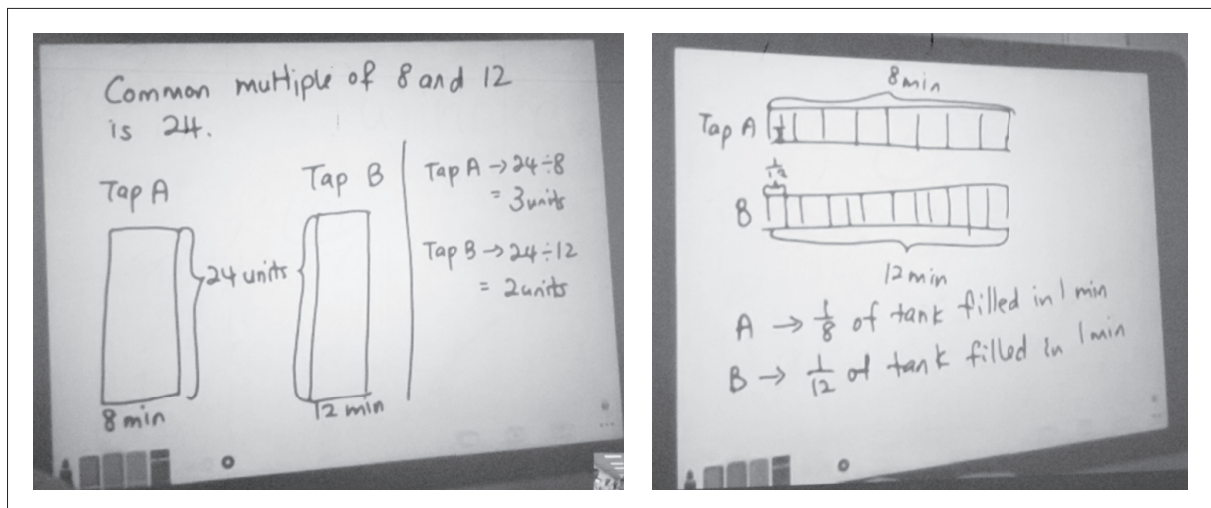 Common multiple of 8 and 12
is 24.
Tap A
Tap B
24 units
8 min
12 min
Tap A → 24 ÷ 8
= 3 units
Tap B → 24 ÷ 12
= 2 units
8 min
Tap A
1/8
1/12
B
12 min
A → 1/8 of tank filled in 1 min
B → 1/12 of tank filled in 1 min